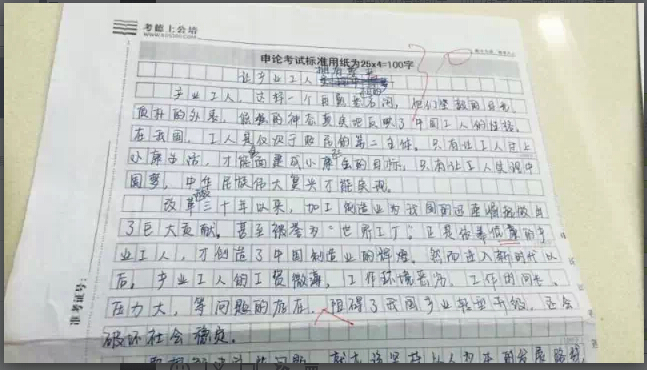 考德上公培
30
申论考试标准用纸为25x4=100字
让产业工人拥有
产业工人，这样一个自强
质朴的外表，的神态真实地反映了中国工人的性格。
在我国，工人是仅次于农民的第二主体。只有让工人过上
小康生活，才能实现建成小康社会的目标，只有让工人实现中
国梦，中华民族伟大复兴才能实现。
改革三十年以来，加工制造业为我国的迅速崛起做出
了巨大贡献。甚至被誉为“世界工厂”。正是依靠低廉的产
业工人，才创造了中国制造业的辉煌。然而进入新时代以
后，产业工人的工资微薄，工作环境恶劣，工作时间长、
压力大，等问题的存在，阻碍了我国产业转型升级，还会
破坏社会稳定。
的问题，就应该坚持以人为本的发展
准考证号：